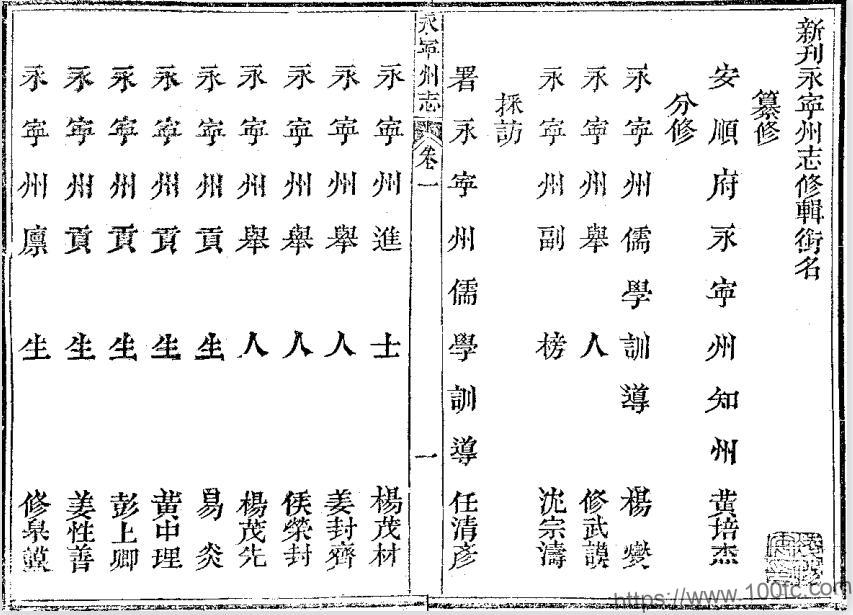 新刊永寧州志修輯銜名
纂修
安順府永寧州知州 黃培杰
分修
永寧州儒學訓導 楊燮
永寧州舉人 修武謨
永寧州副榜 沈宗濤
採訪
署永寧州儒學訓導 任清彥
永寧州志 卷一 一
永寧州進士 楊茂材
永寧州舉人 姜封齊
永寧州舉人 侯榮封
永寧州舉人 楊茂先
永寧州貢生 易炎
永寧州貢生 黃中理
永寧州貢生 彭上卿
永寧州貢生 姜性善
永寧州廩生 修泉謨
https://www.100fc.com